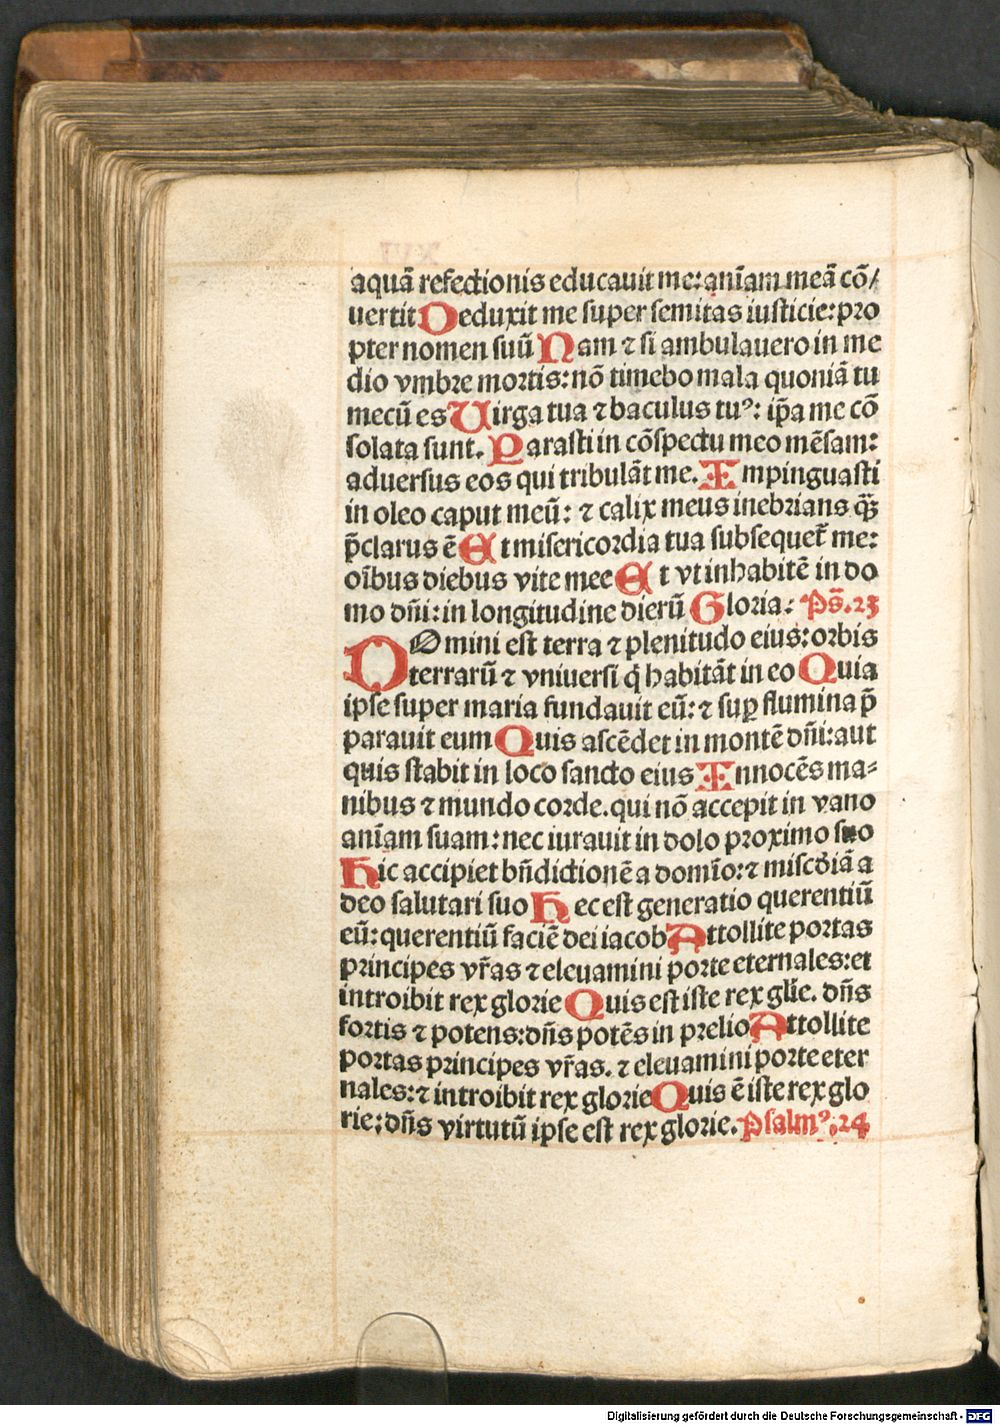 aquā refectionis educauit me: anīam meā cō/
uertit Deduxit me super semitas iusticie: pro
pter nomen suū Nam ⁊ si ambulauero in me
dio vmbre mortis: nō timebo mala quoniā tu
mecū es Uirga tua ⁊ baculus tuꝰ: ip̄a me cō
solata sunt. Parasti in cōspectu meo mēsam:
aduersus eos qui tribulāt me. Impinguasti
in oleo caput meū: ⁊ calix meus inebrians q̄ꝫ
p̄clarus ē Et misericordia tua subsequet̄ me:
oībus diebus vite mee Et vt inhabitē in do
mo dn̄i: in longitudine dierū Gloria: Ps̄. 23
DOmini est terra ⁊ plenitudo eius: orbis
terrarū ⁊ vniuersi q̇ habitāt in eo Quia
ipse super maria fundauit eū: ⁊ suꝑ flumina p̄
parauit eum Quis ascēdet in montē dn̄i: aut
quis stabit in loco sancto eius Innocēs ma-
nibus ⁊ mundo corde. qui nō accepit in vano
anīam suam: nec iurauit in dolo proximo suo
Hic accipiet bn̄dictionē a domīo: ⁊ miscd̄iā a
deo salutari suo Hec est generatio querentiū
eū: querentiū faciē dei iacob Attollite portas
principes vr̄as ⁊ eleuamini porte eternales: et
introibit rex glorie Quis est iste rex gl̄ie. dn̄s
fortis ⁊ potens: dn̄s potēs in prelio Attollite
portas principes vr̄as. ⁊ eleuamini porte eter
nales: ⁊ introibit rex glorie Quis ē iste rex glo
rie: dn̄s virtutū ipse est rex glorie. Psalmꝰ. 24
Digitalisierung gefördert durch die Deutsche Forschungsgemeinschaft - DFG